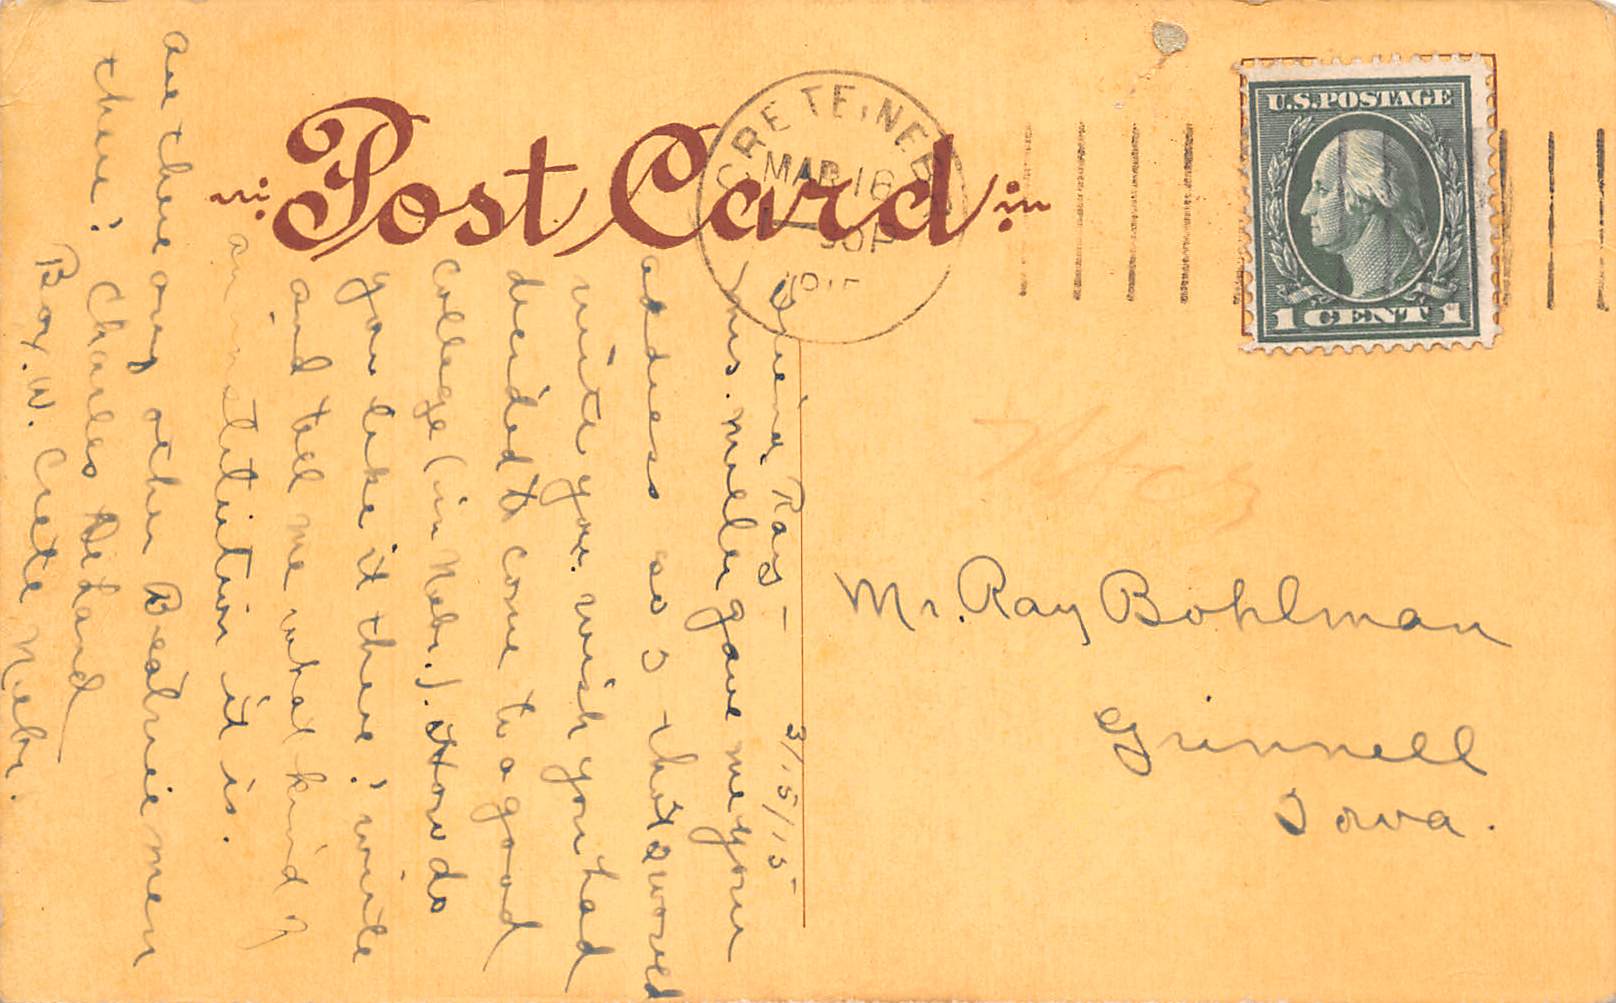 Post Card
CRETE, NEBR
MAR 16
U.S. POSTAGE
1 CENT 1
3/15/15
Friend Ray –
Mrs. Miller gave me your
address so I that I would
write you. wish you had
decided to come to a good
College (in Nebr.). How do
you like it there? write
and tell me what kind of
an institution it is.
are there any other Beatrice men
there? Charles DeLand
Box. W. Crete Nebr.
Mr. Ray Bohlman
Grinnell
Iowa.